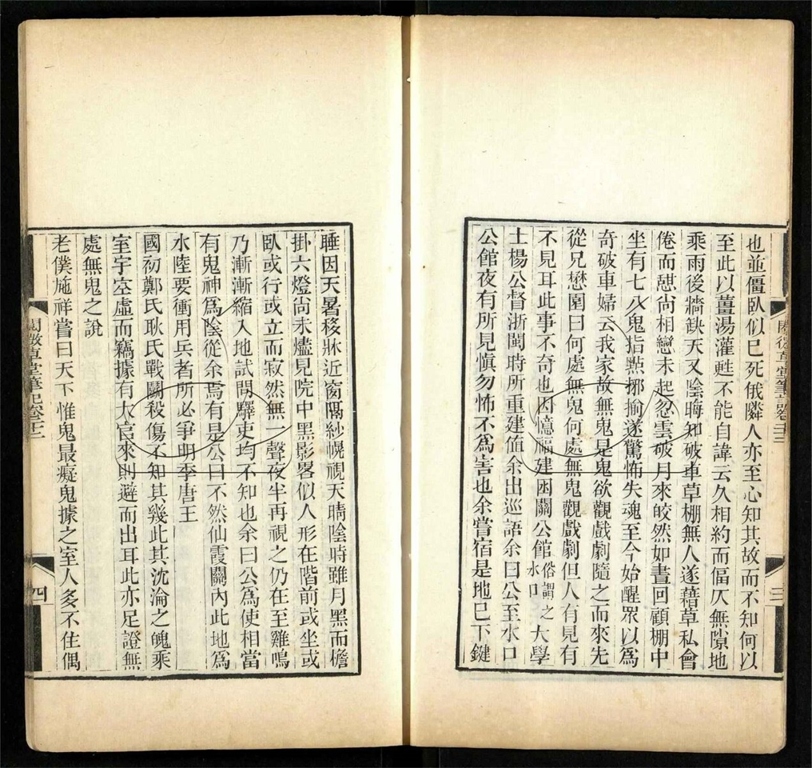 閱微草堂筆記卷十三
三
也並僵臥似已死俄隣人亦至心知其故而不知何以
至此以薑湯灌甦不能自諱云久相約而偪仄無隙地
乘雨後牆缺天又陰晦知破車草棚無人遂藉草私會
倦而憩尚相戀未起忽雲破月來皎然如晝回顧棚中
坐有七八鬼指點揶揄遂驚怖失魂至今始醒眾以為
奇破車婦云我家故無鬼是鬼欲觀戲劇隨之而來先
從兄懋園曰何處無鬼何處無鬼觀戲劇但人有見有
不見耳此事不奇也因憶福建囦關公館俗謂之水口大學
士楊公督浙閩時所重建值余出巡語余曰公至水口
公館夜有所見慎勿怖不為害也余嘗宿是地已下鍵
睡因天暑移牀近窗隔紗幌視天晴陰時雖月黑而檐
掛六燈尚未燼見院中黑影畧似人形在階前或坐或
臥或行或立而寂然無一聲夜半再視之仍在至雞鳴
乃漸漸縮入地試問驛吏均不知也余曰公為使相當
有鬼神為陰從余焉有是公曰不然仙霞關內此地為
水陸要衝用兵者所必爭明季唐王
國初鄭氏耿氏戰鬭殺傷不知其幾此其沈淪之魄乘
室宇空虛而竊據有大官來則避而出耳此亦足證無
處無鬼之說
老僕施祥嘗曰天下惟鬼最癡鬼據之室人多不住偶
閱微草堂筆記卷十三
四